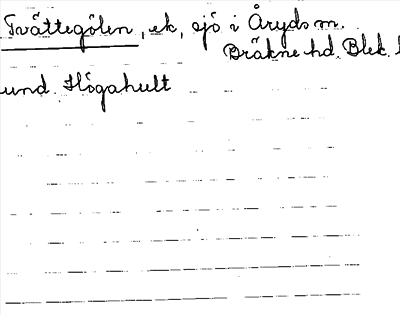 Tvättegölen, ek, sjö i Åryds m.
Bräkne hd. Blek. l
und. Högahult